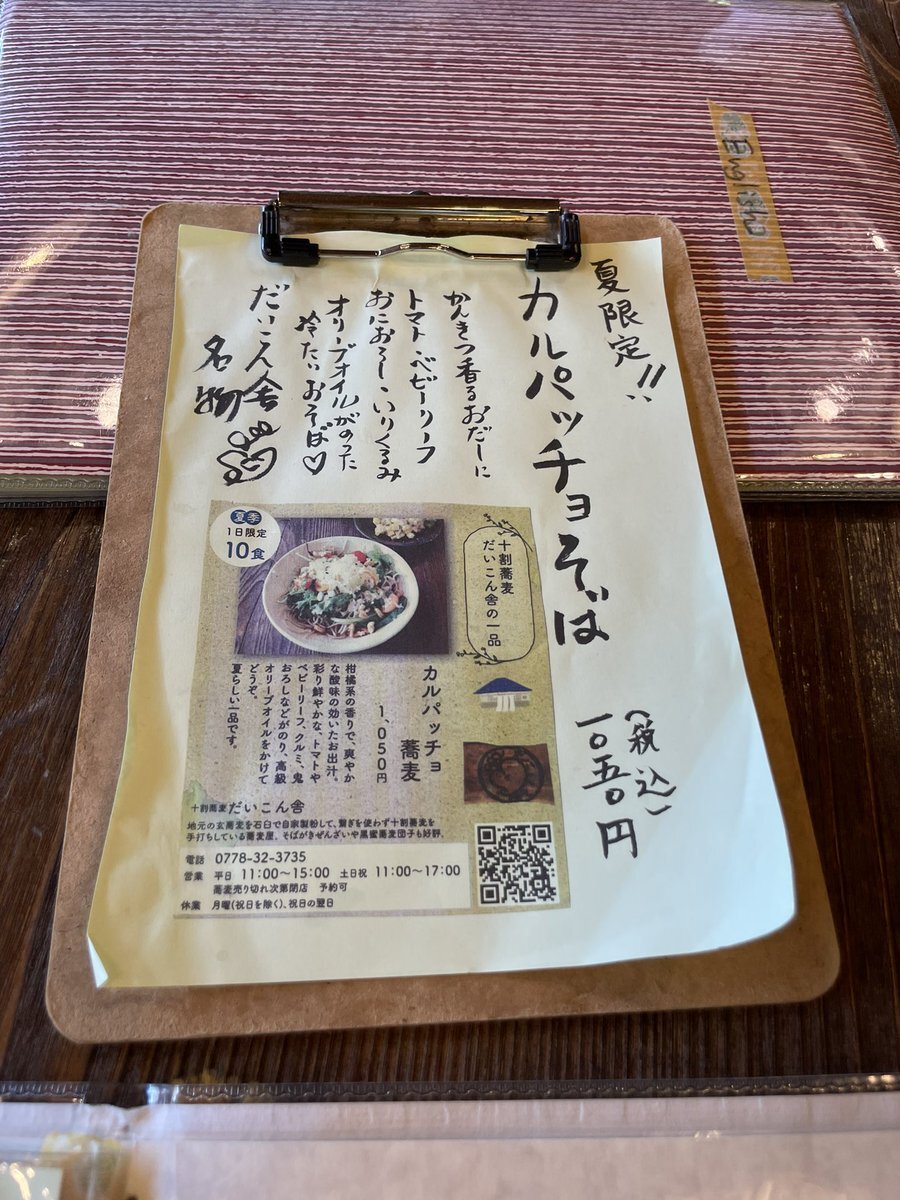 夏限定!!
カルパッチョそば
(税込)
一〇五〇円
かんきつ香るおだしに
トマト・ベビーリーフ
おにおろし・いりくるみ
オリーブオイルがのった
冷たいおそば♡
だいこん舎
名物
夏季
1日限定
10食
十割蕎麦
だいこん舎の一品
カルパッチョ
蕎麦
1,050円
柑橘系の香りで、爽やか
な酸味の効いたお出汁。
彩り鮮やかな、トマトや
ベビーリーフ、クルミ、鬼
おろしなどがのり、高級
オリーブオイルをかけて
どうぞ。
夏らしい一品です。
十割蕎麦 だいこん舎
地元の玄蕎麦を石臼で自家製粉して、繋ぎを使わず十割蕎麦を
手打ちしている蕎麦屋。そばがきぜんざいや黒蜜蕎麦団子も好評。
電話 0778-32-3735
営業 平日 11:00～15:00 土日祝 11:00～17:00
蕎麦売り切れ次第閉店 予約可
休業 月曜(祝日を除く)、祝日の翌日